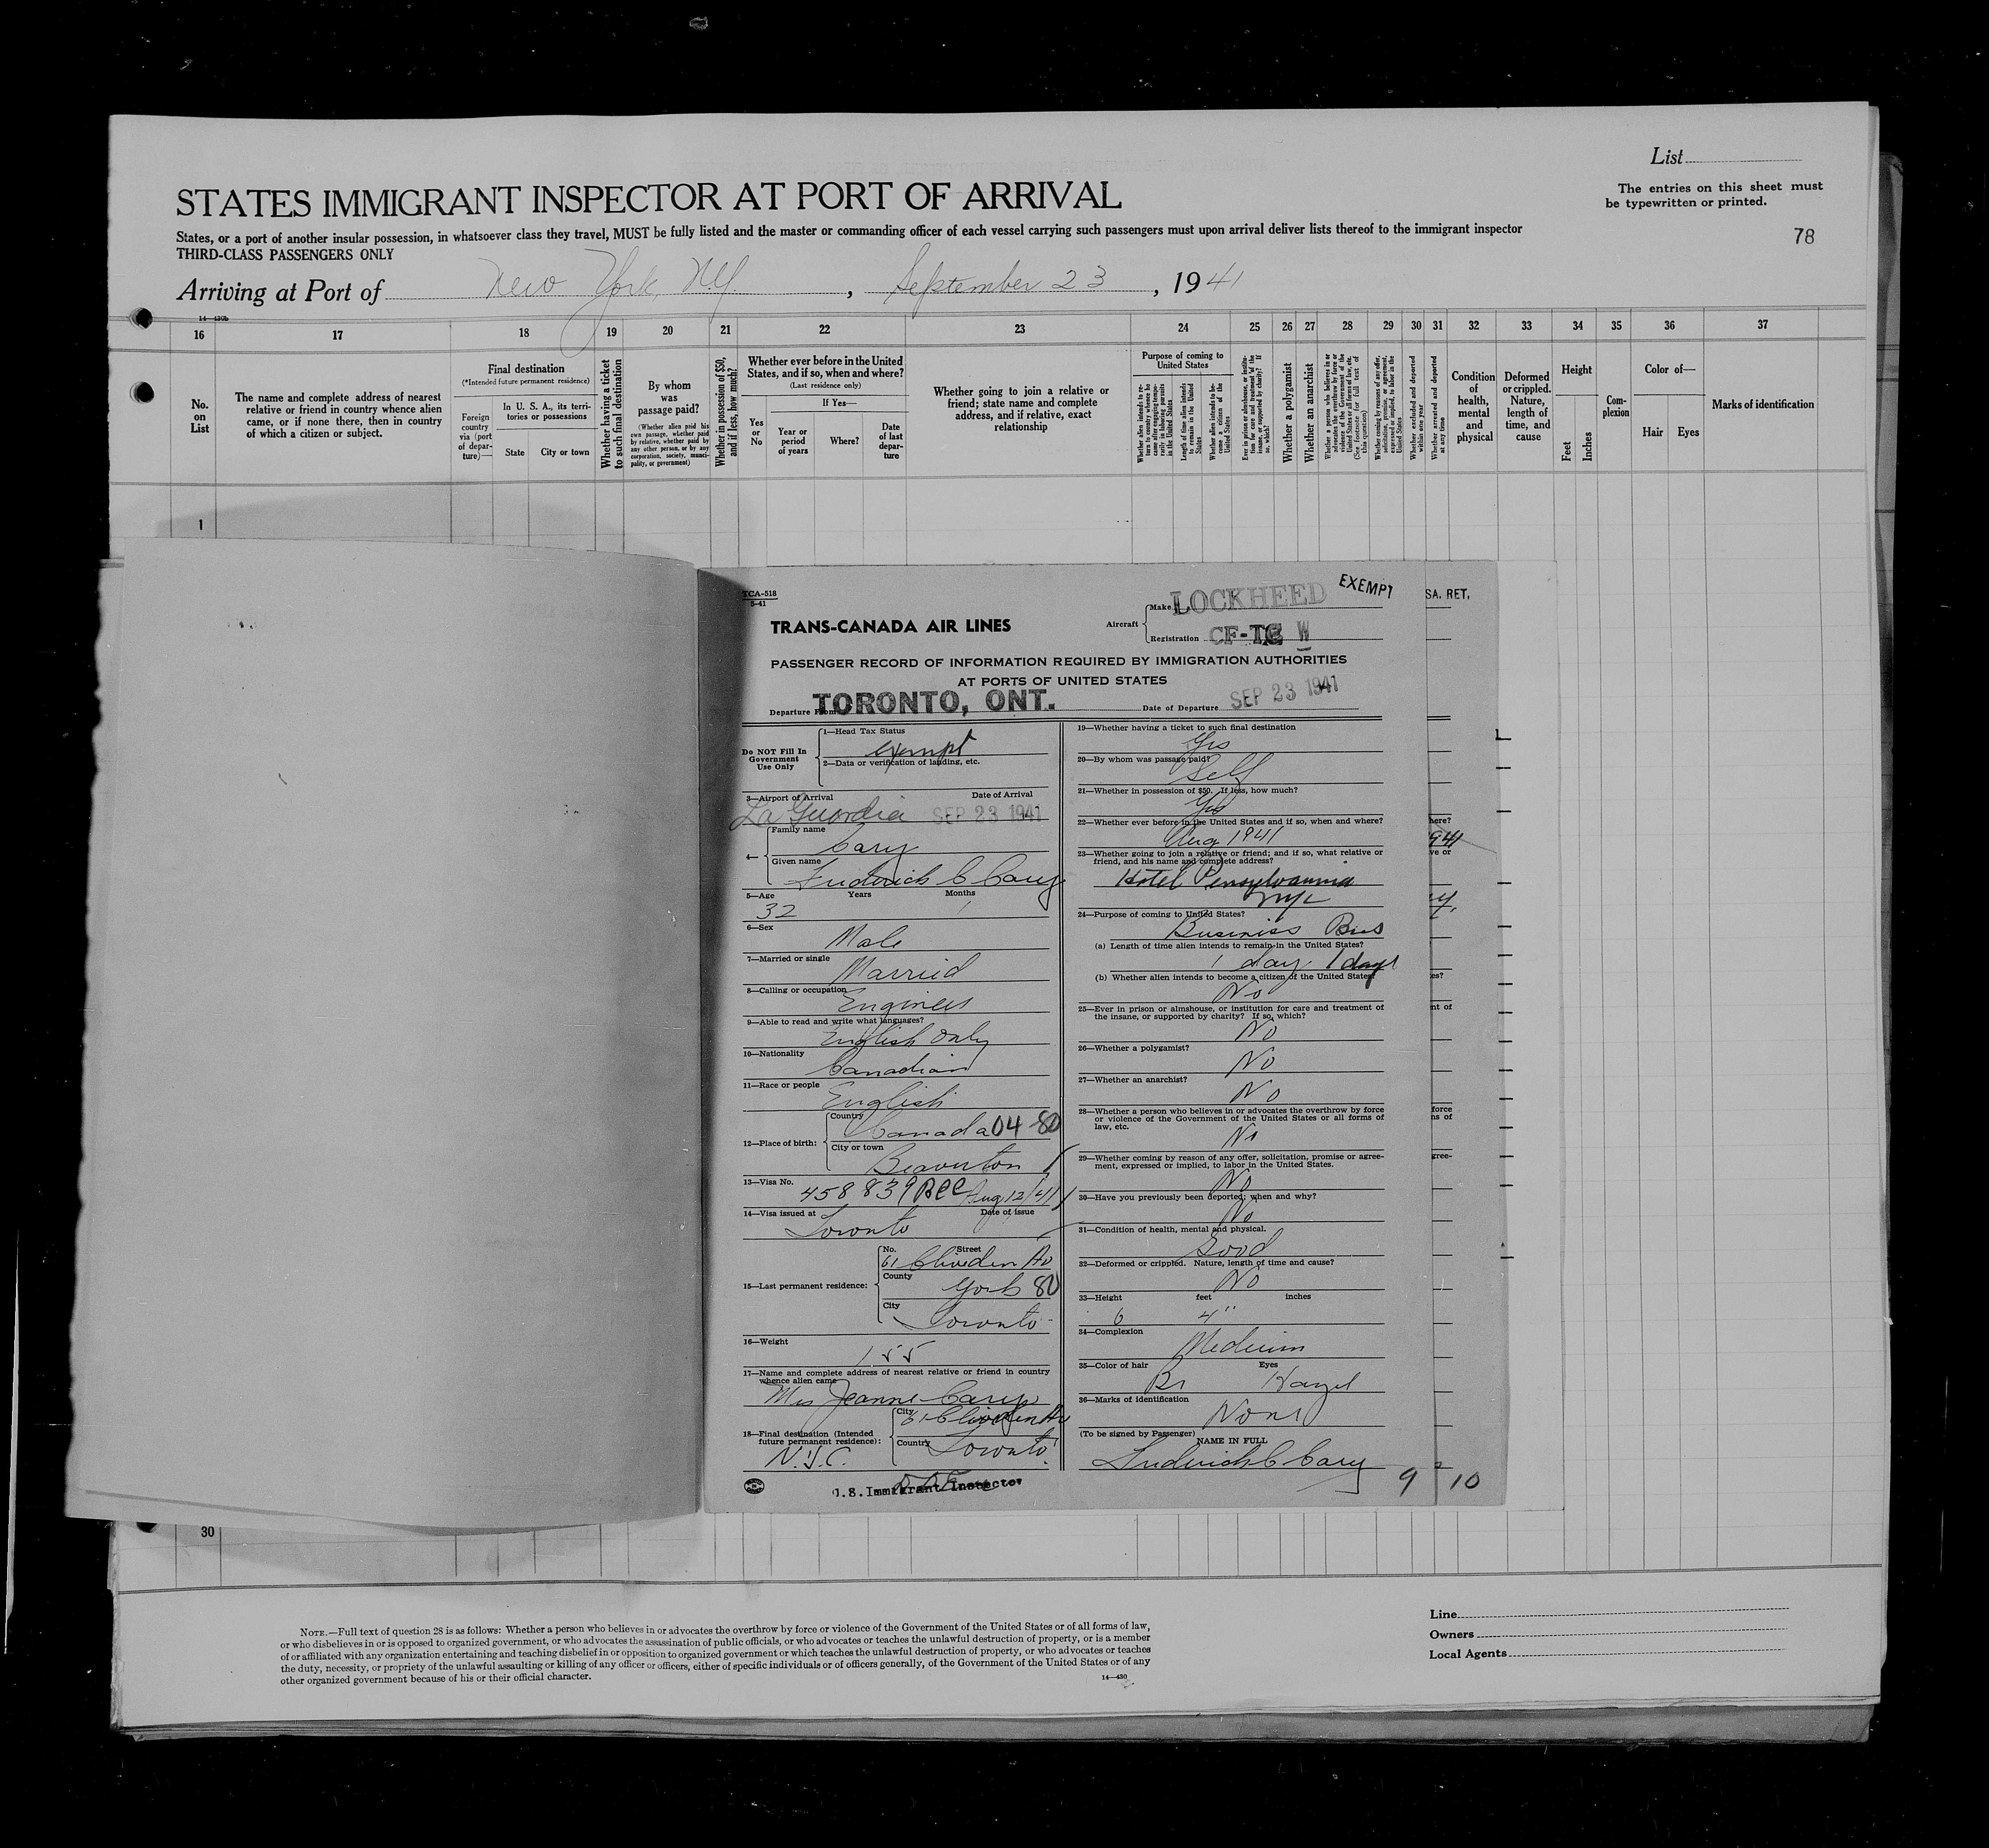 List
The entries on this sheet must
be typewritten or printed.
78
STATES IMMIGRANT INSPECTOR AT PORT OF ARRIVAL
States, or a port of another insular possession, in whatsoever class they travel, MUST be fully listed and the master or commanding officer of each vessel carrying such passengers must upon arrival deliver lists thereof to the immigrant inspector
THIRD-CLASS PASSENGERS ONLY
Arriving at Port of New York, N.Y. , September 23 , 1941
16 17 18 19 20 21 22 23 24 25 26 27 28 29 30 31 32 33 34 35 36 37
No. on List
The name and complete address of nearest relative or friend in country whence alien came, or if none there, then in country of which a citizen or subject.
Final destination
(*Intended future permanent residence)
Foreign country via (port of departure)
In U. S. A., its territories or possessions
State
City or town
Whether having a ticket to such final destination
By whom was passage paid?
(Whether alien paid his own passage, whether paid by relative, whether paid by any other person, or by any corporation, society, municipality, or government)
Whether in possession of $50, and if less, how much?
Whether ever before in the United States, and if so, when and where?
(Last residence only)
Yes or No
If Yes—
Year or period of years
Where?
Date of last departure
Whether going to join a relative or friend; state name and complete address, and if relative, exact relationship
Purpose of coming to United States
Whether a polygamist
Whether an anarchist
Whether excluded and deported within one year
Whether arrested and deported at any time
Condition of health, mental and physical
Deformed or crippled. Nature, length of time, and cause
Height
Feet
Inches
Complexion
Color of—
Hair
Eyes
Marks of identification
1
TCA-518
5-41
TRANS-CANADA AIR LINES
Aircraft
Make LOCKHEED
EXEMPT
SA. RET.
Registration CF-TC W
PASSENGER RECORD OF INFORMATION REQUIRED BY IMMIGRATION AUTHORITIES
AT PORTS OF UNITED STATES
Departure From TORONTO, ONT.
Date of Departure SEP 23 1941
Do NOT Fill In
Government
Use Only
1—Head Tax Status
exempt
2—Data or verification of landing, etc.
3—Airport of Arrival Date of Arrival
La Guardia SEP 23 1941
4—
Family name
Cary
Given name
Frederick C Cary
5—Age Years Months
32 1
6—Sex
Male
7—Married or single
Married
8—Calling or occupation
Engineer
9—Able to read and write what languages?
English Only
10—Nationality
Canadian
11—Race or people
English
12—Place of birth:
Country
Canada 04-80
City or town
Beaverton
13—Visa No.
458839 Aug 12/41
14—Visa issued at Date of issue
Toronto
15—Last permanent residence:
No. Street
61 Cliveden Av
County
York 80
City
Toronto
16—Weight
155
17—Name and complete address of nearest relative or friend in country
whence alien came
Mrs Jeanne Cary
City
61 Cliveden Av
18—Final destination (Intended
future permanent residence):
N.Y.C.
Country
Toronto
U.S. Immigrant Inspector
19—Whether having a ticket to such final destination
Yes
20—By whom was passage paid?
Self
21—Whether in possession of $50. If less, how much?
Yes
22—Whether ever before in the United States and if so, when and where?
Aug 1941
23—Whether going to join a relative or friend; and if so, what relative or
friend, and his name and complete address?
Hotel Pensylvannia
NYC
24—Purpose of coming to United States?
Business Bus
(a) Length of time alien intends to remain in the United States?
1 day 1 days
(b) Whether alien intends to become a citizen of the United States?
No
25—Ever in prison or almshouse, or institution for care and treatment of
the insane, or supported by charity? If so, which?
No
26—Whether a polygamist?
No
27—Whether an anarchist?
No
28—Whether a person who believes in or advocates the overthrow by force
or violence of the Government of the United States or all forms of
law, etc.
No
29—Whether coming by reason of any offer, solicitation, promise or agree-
ment, expressed or implied, to labor in the United States.
No
30—Have you previously been deported; when and why?
No
31—Condition of health, mental and physical.
Good
32—Deformed or crippled. Nature, length of time and cause?
No
33—Height feet inches
6 4"
34—Complexion
Medium
35—Color of hair Eyes
Br Hazel
36—Marks of identification
None
(To be signed by Passenger)
NAME IN FULL
Frederick C Cary
9 10
30
NOTE.—Full text of question 28 is as follows: Whether a person who believes in or advocates the overthrow by force or violence of the Government of the United States or of all forms of law,
or who disbelieves in or is opposed to organized government, or who advocates the assassination of public officials, or who advocates or teaches the unlawful destruction of property, or is a member
of or affiliated with any organization entertaining and teaching disbelief in or opposition to organized government or which teaches the unlawful destruction of property, or who advocates or teaches
the duty, necessity, or propriety of the unlawful assaulting or killing of any officer or officers, either of specific individuals or of officers generally, of the Government of the United States or of any
other organized government because of his or their official character.
14—430
Line
Owners
Local Agents